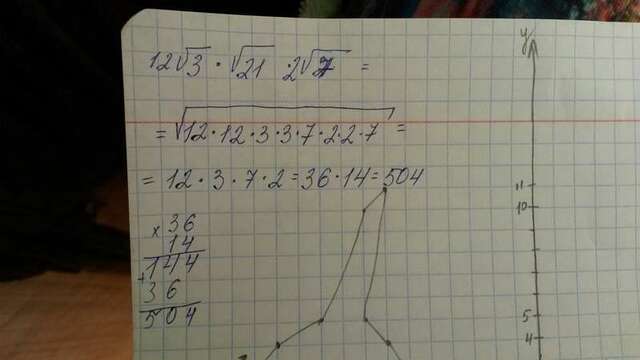 12√3 · √21 · 2√7 =
= √12·12·3·3·7·2·2·7 =
= 12 · 3 · 7 · 2 = 36 · 14 = 504
× 36
14
144
+
36
504
y
11
10
5
4